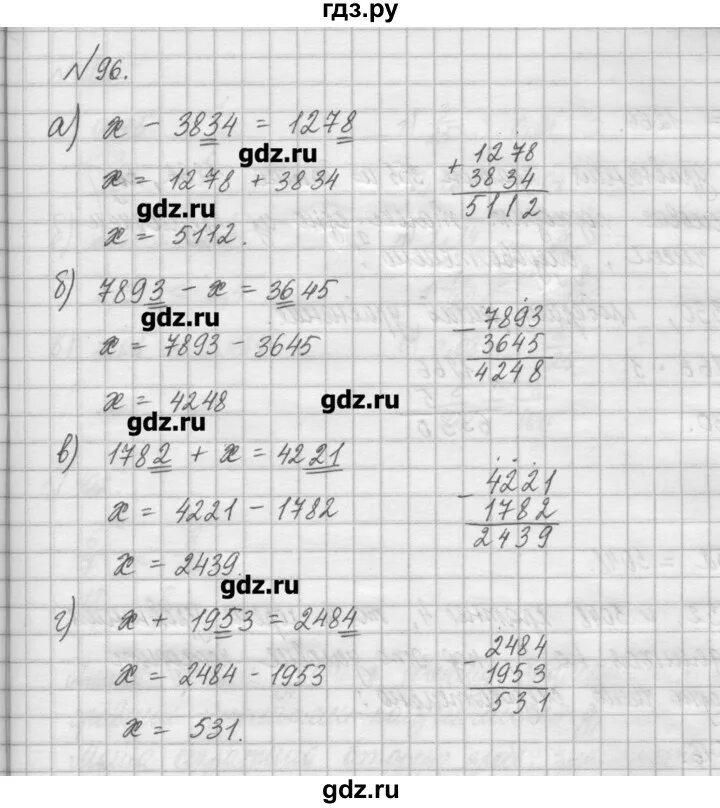 гдз.ру
№ 96.
а) x - 3834 = 1278
gdz.ru
x = 1278 + 3834
gdz.ru
x = 5112.
+ 1278
3834
5112
б) 7893 - x = 3645
gdz.ru
x = 7893 - 3645
x = 4248
gdz.ru
gdz.ru
- 7893
3645
4248
в) 1782 + x = 4221
x = 4221 - 1782
x = 2439.
gdz.ru
- 4221
1782
2439
г) x + 1953 = 2484
x = 2484 - 1953
x = 531.
- 2484
1953
531
gdz.ru